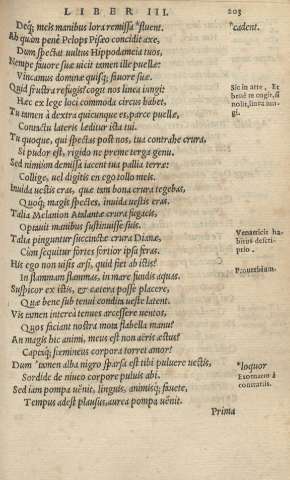 LIBER III. 203
Deq́; meis manibus lora remissa *fluent.
*cadent.
Ah quàm penè Pelops Pisæo concidit axe,
Dum spectat uultus Hippodameia tuos,
Nempe fauore suæ uicit tamen ille puellæ:
Vincamus dominæ quisq; fauore suæ.
Quid frustra refugis? cogit nos linea iungi:
Sic in arte, Et
Hæc ex lege loci commoda circus habet,
si nolit, linea iun-
gi.
Tu tamen à dextra quicunque es, parce puellæ,
Contactu lateris læditur ista tui.
Tu quoque, qui spectas post nos, tua contrahe crura,
Si pudor est, rigido ne preme terga genu.
Sed nimium demissa iacent tua pallia terræ:
Collige, uel digitis en ego tollo meis.
Inuida uestis eras, quæ tam bona crura tegebas,
Quoq́; magis spectes, inuida uestis eras.
Talia Melanion Atalantæ crura fugacis,
Optauit manibus sustinuisse suis.
Talia pinguntur succinctæ crura Dianæ,
Venatricis ha-
bitus descri-
ptio.
Cùm sequitur fortes fortior ipsa feras.
His ego non uisis arsi, quid fiet ab ipsis?
Prouerbium.
In flammam flammas, in mare fundis aquas.
Suspicor ex istis, & cætera posse placere,
Quæ bene sub tenui condita ueste latent.
Vis tamen interea tenues arcessere uentos,
Quos faciant nostra mota flabella manu?
An magis hic animi, meus est non aëris æstus?
Captq́; fœmineus corpora torret amor?
Dum *tamen alba nigro sparsa est tibi puluere uestis,
*loquor
Sordide de niueo corpore puluis abi.
Exornatio à
contrariis.
Sed iam pompa uênit, linguis, animisq́; fauete,
Tempus adest plausus, aurea pompa uênit.
Prima